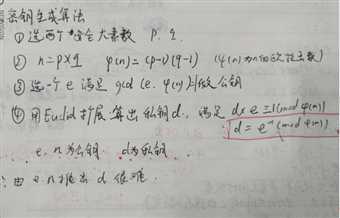 密钥生成算法
① 选两个安全大素数 p. q
② n=p×q φ(n)=(p-1)(q-1) (φ(n)为n的欧拉函数)
③ 选一个e 满足 gcd(e. φ(n))=1 做公钥
④ 用Euclid扩展算出私钥d, 满足 d×e≡1(mod φ(n))
d=e⁻¹(mod φ(n))
e. n 为公钥 d为私钥
由 e. n 推出 d 很难.